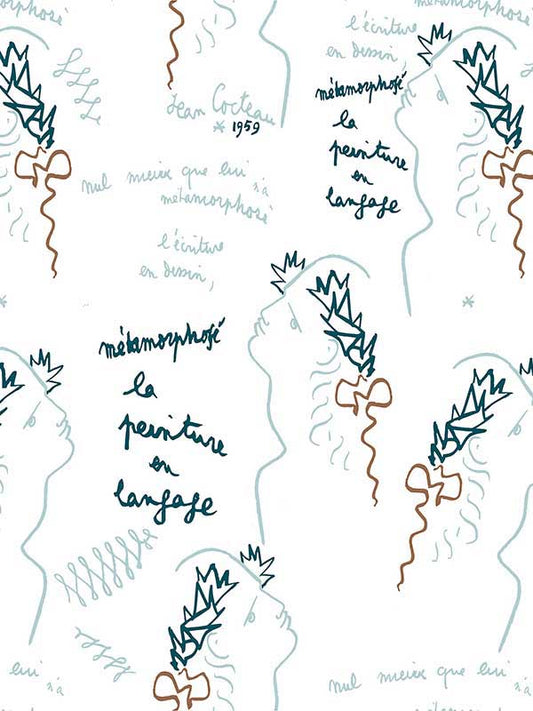 métamorphosé
métamorphosé
l'écriture
en dessin,
métamorphosé
la
peinture
en
langage
Jean Cocteau
* 1959
nul mieux que lui
n'a
métamorphosé
l'écriture
en dessin,
métamorphosé
la
peinture
en
langage
lui
n'a
nul mieux que lui
n'a
métamorphosé